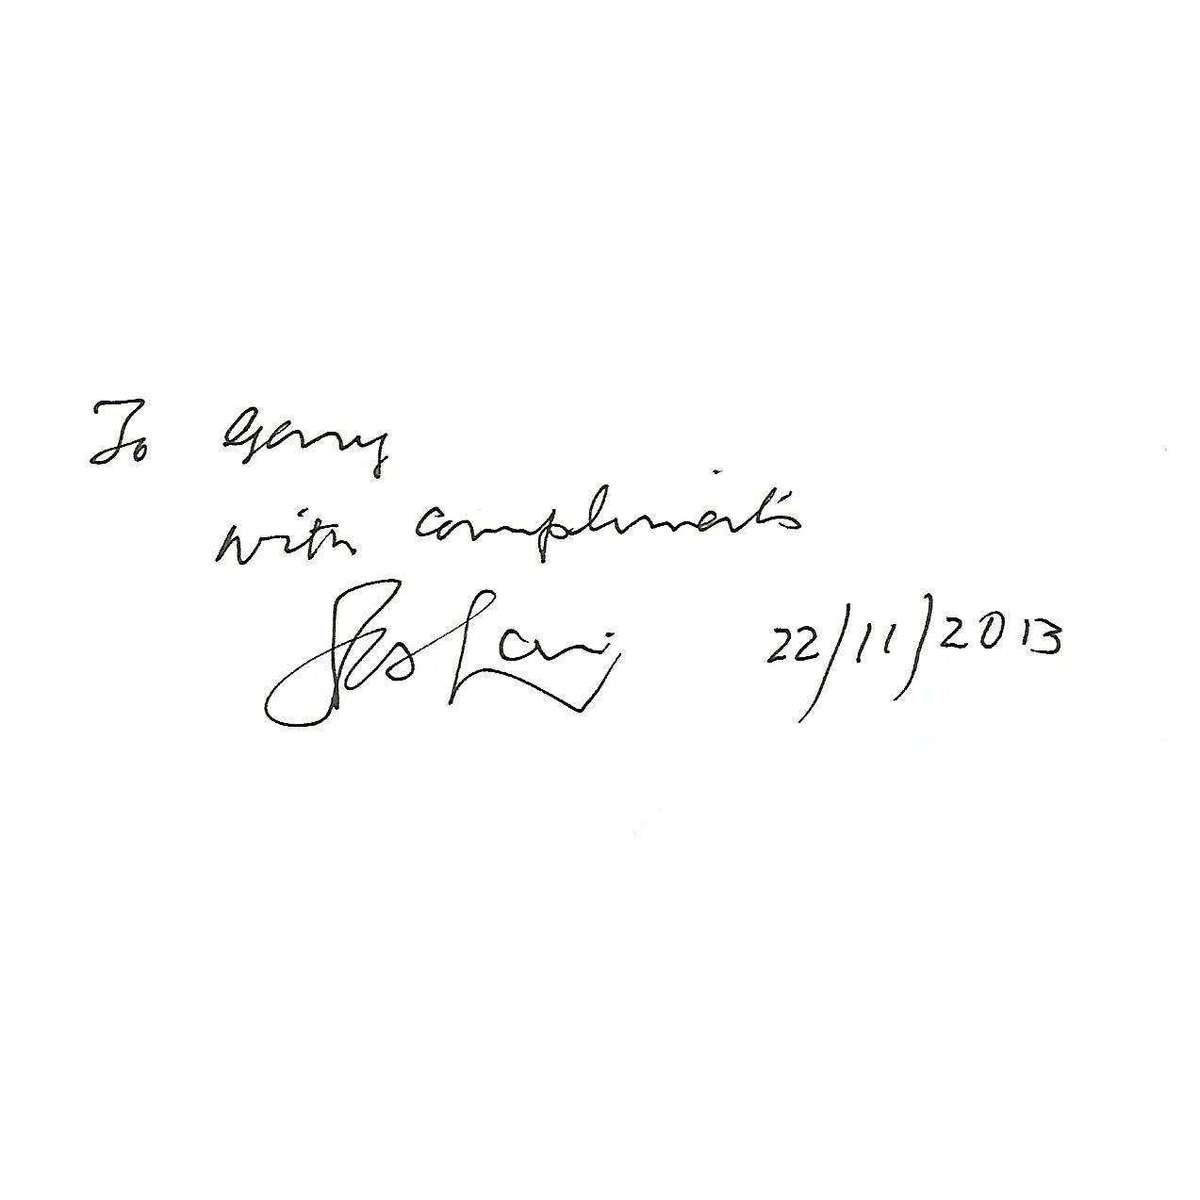 To Gerry
with compliments
22/11/2013